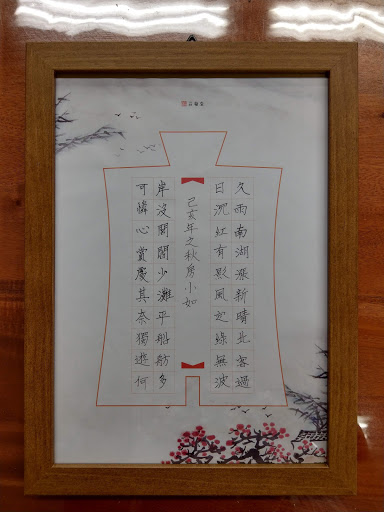 久雨南湖漲新晴北客過
日沉紅有影風定綠無波
己亥年之秋房小如
岸沒閭閻少灘平船舫多
可憐心賞處其奈獨遊何